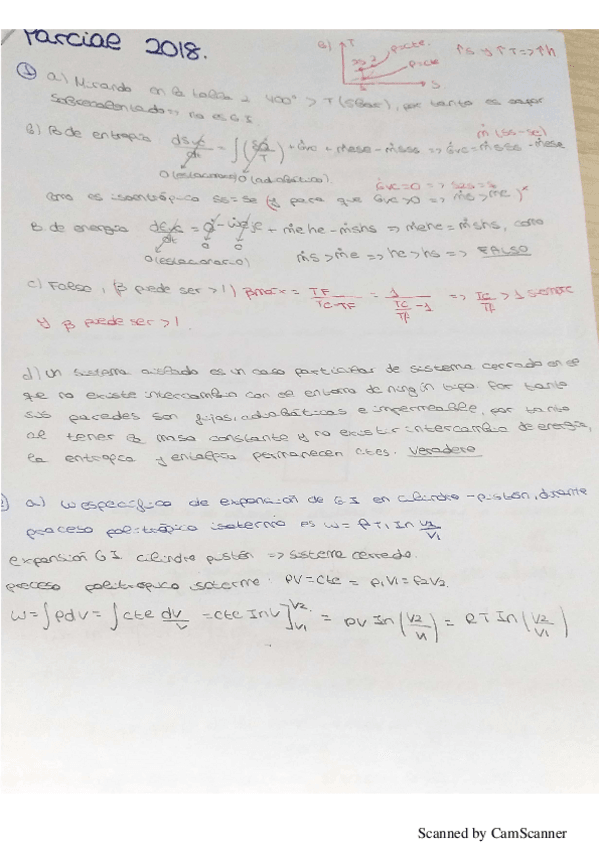 Parcial 2018.
a) T pcte. pcte s
↑s y ↑T => ↑h
① a) Mirando en la tabla 2 400° > T (5bar), por tanto es vapor
sobrecalentado => no es G.I.
ṁ(ss-se)
b) B de entropía dSvc/dt = ∫(δQ̇/T) + σ̇vc + ṁese - ṁsss => σ̇vc = ṁsss - ṁese
0(estacionario) 0(adiabático).
σ̇vc=0 => s2s=s
Como es isoentrópico ss=se (y para que σ̇vc>0 => ṁs>ṁe)*
B. de energía dEvc/dt = Q̇ - Ẇvc + ṁehe - ṁshs => ṁehe = ṁshs, como
0 0
0(estacionario) ṁs>ṁe => he>hs => FALSO
c) Falso, (β puede ser >1) βmax = TF/(TC-TF) = 1/(TC/TF -1) => TC/TF >1 siempre
y β puede ser >1.
d) Un sistema aislado es un caso particular de sistema cerrado en el
que no existe intercambio con el entorno de ningún tipo. Por tanto
sus paredes son fijas, adiabáticas e impermeable, por tanto
al tener la masa constante y no existir intercambio de energía,
la entropía y entalpía permanecen ctes. Verdadero
a) W específico de expansión de GI en cilindro-pistón, durante
proceso politrópico isotermo es w = RT1 ln V2/V1
expansión GI cilindro pistón => sistema cerrado.
proceso politropico isotermo: pV = cte = p1V1 = p2V2.
W = ∫pdV = ∫cte dV/V = cte lnV]V2 V1 = pV ln(V2/V1) = RT ln(V2/V1)
Scanned by CamScanner